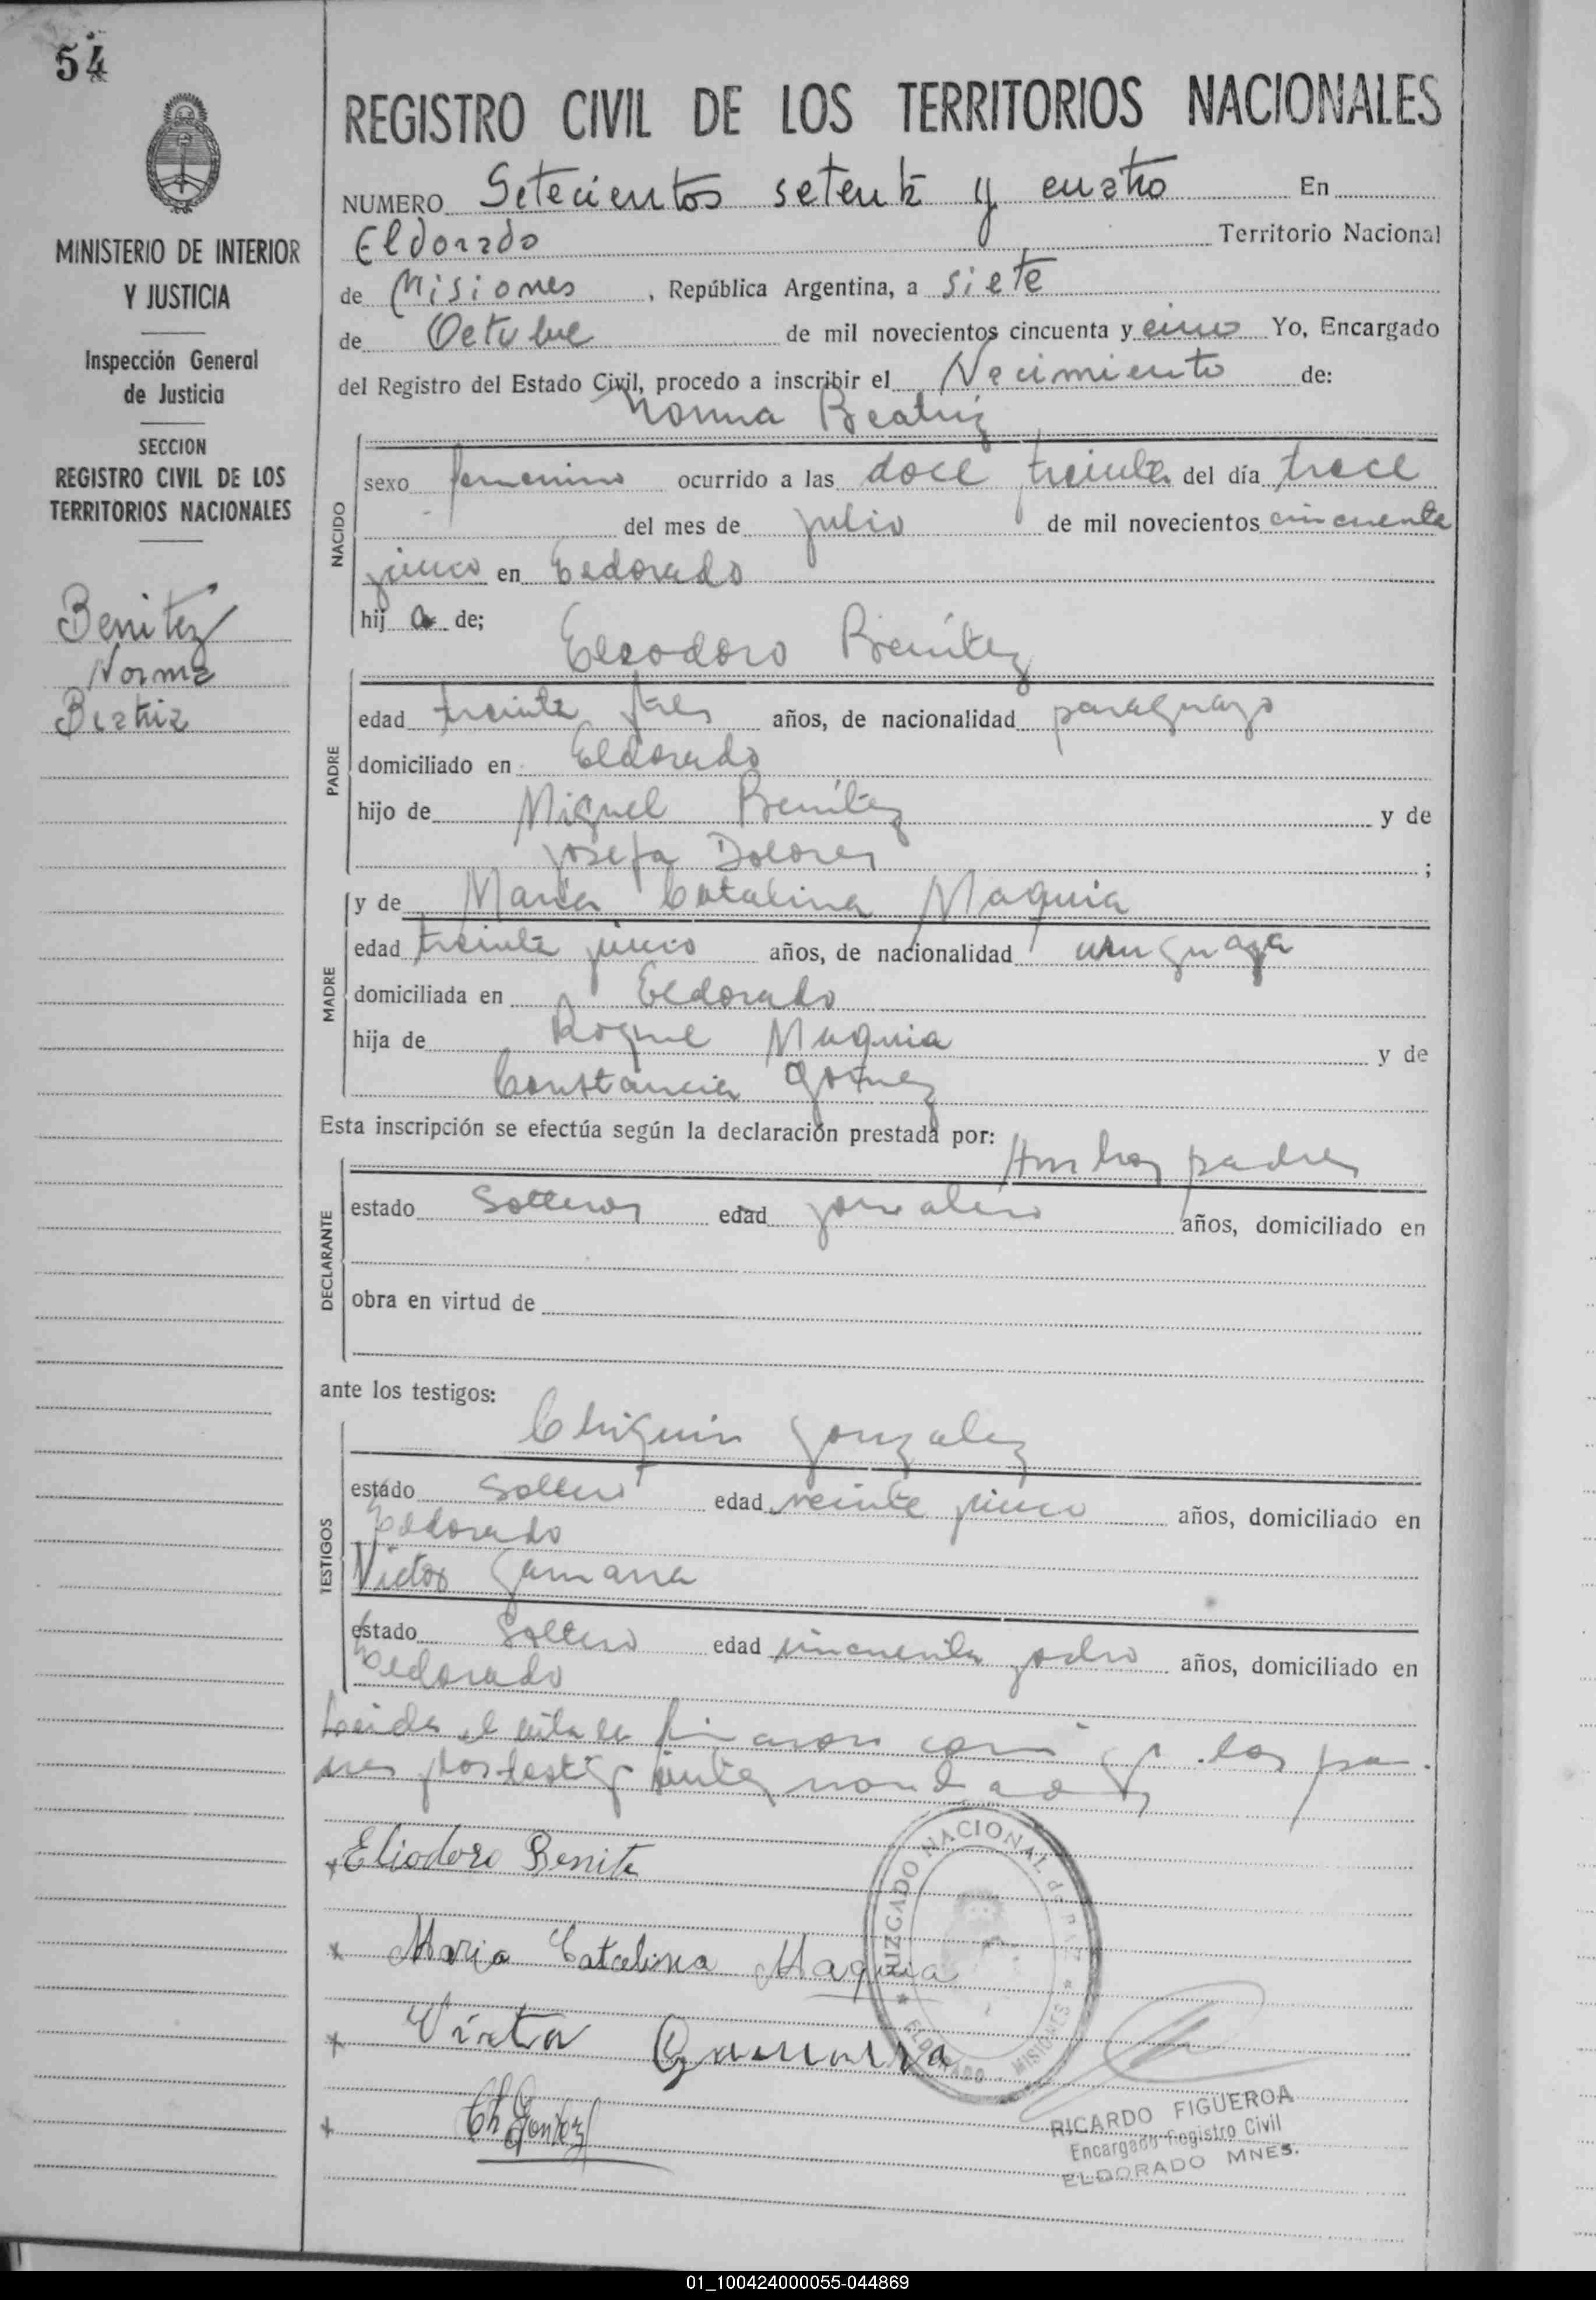 54
REGISTRO CIVIL DE LOS TERRITORIOS NACIONALES
MINISTERIO DE INTERIOR
Y JUSTICIA
Inspección General
de Justicia
SECCION
REGISTRO CIVIL DE LOS
TERRITORIOS NACIONALES
Benitez
Norma
Beatriz
NUMERO Setecientos setenta y cuatro En
Eldorado Territorio Nacional
de Misiones, República Argentina, a siete
de Octubre de mil novecientos cincuenta y cinco Yo, Encargado
del Registro del Estado Civil, procedo a inscribir el Nacimiento de:
Norma Beatriz
NACIDO
sexo femenino ocurrido a las doce treinta del día trece
del mes de julio de mil novecientos cincuenta
y cinco en Eldorado
hija de;
Eleodoro Benítez
PADRE
edad treinta y tres años, de nacionalidad paraguayo
domiciliado en Eldorado
hijo de Miguel Benítez y de
Josefa Dolores ;
MADRE
y de María Catalina Maquia
edad treinta y cinco años, de nacionalidad uruguaya
domiciliada en Eldorado
hija de Roque Maquia y de
Constancia Gomez
Esta inscripción se efectúa según la declaración prestada por:
Ambos padres
DECLARANTE
estado solteros edad años, domiciliado en
obra en virtud de
ante los testigos:
TESTIGOS
Chiquin Gonzalez
estado soltero edad veinte y cinco años, domiciliado en
Eldorado
Victor Gamarra
estado soltero edad cincuenta y ocho años, domiciliado en
Eldorado
Leida el acta la firmaron los pa
Eliodoro Benite
Maria Catalina Maquia
Victor Gamarra
Ch Gonzalez
JUZGADO NACIONAL de PAZ
ELDORADO - MISIONES
RICARDO FIGUEROA
Encargado Registro Civil
ELDORADO MNES.
01_100424000055-044869